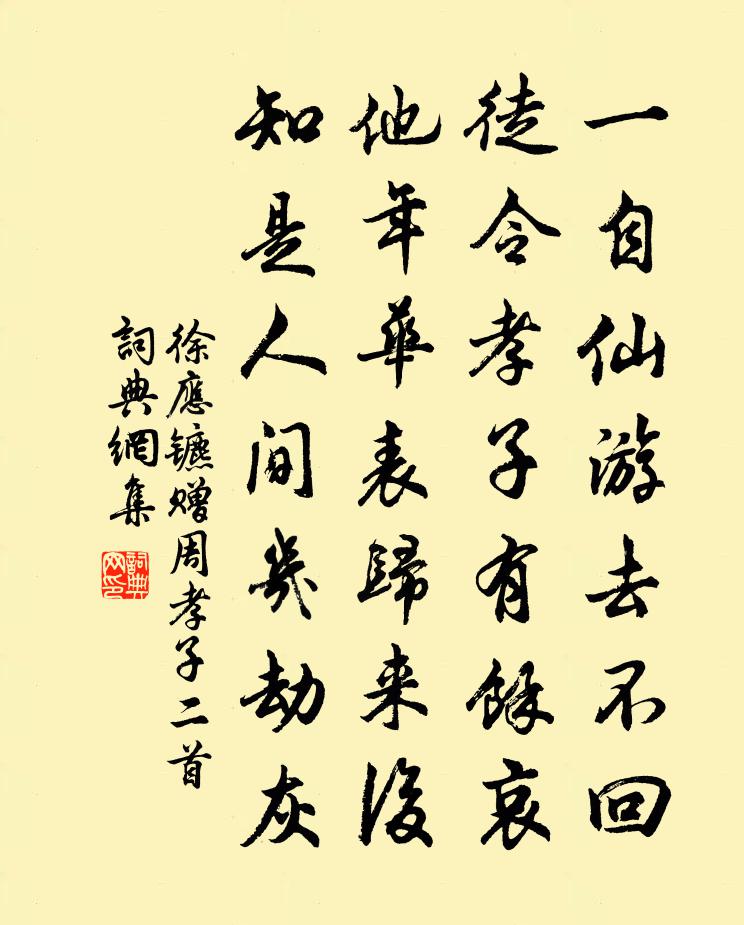 一自仙游去不回
徒令孝子有餘哀
他年華表歸来後
知是人间幾劫灰
徐應鑣赠周孝子二首
詞典網集
詞典网印